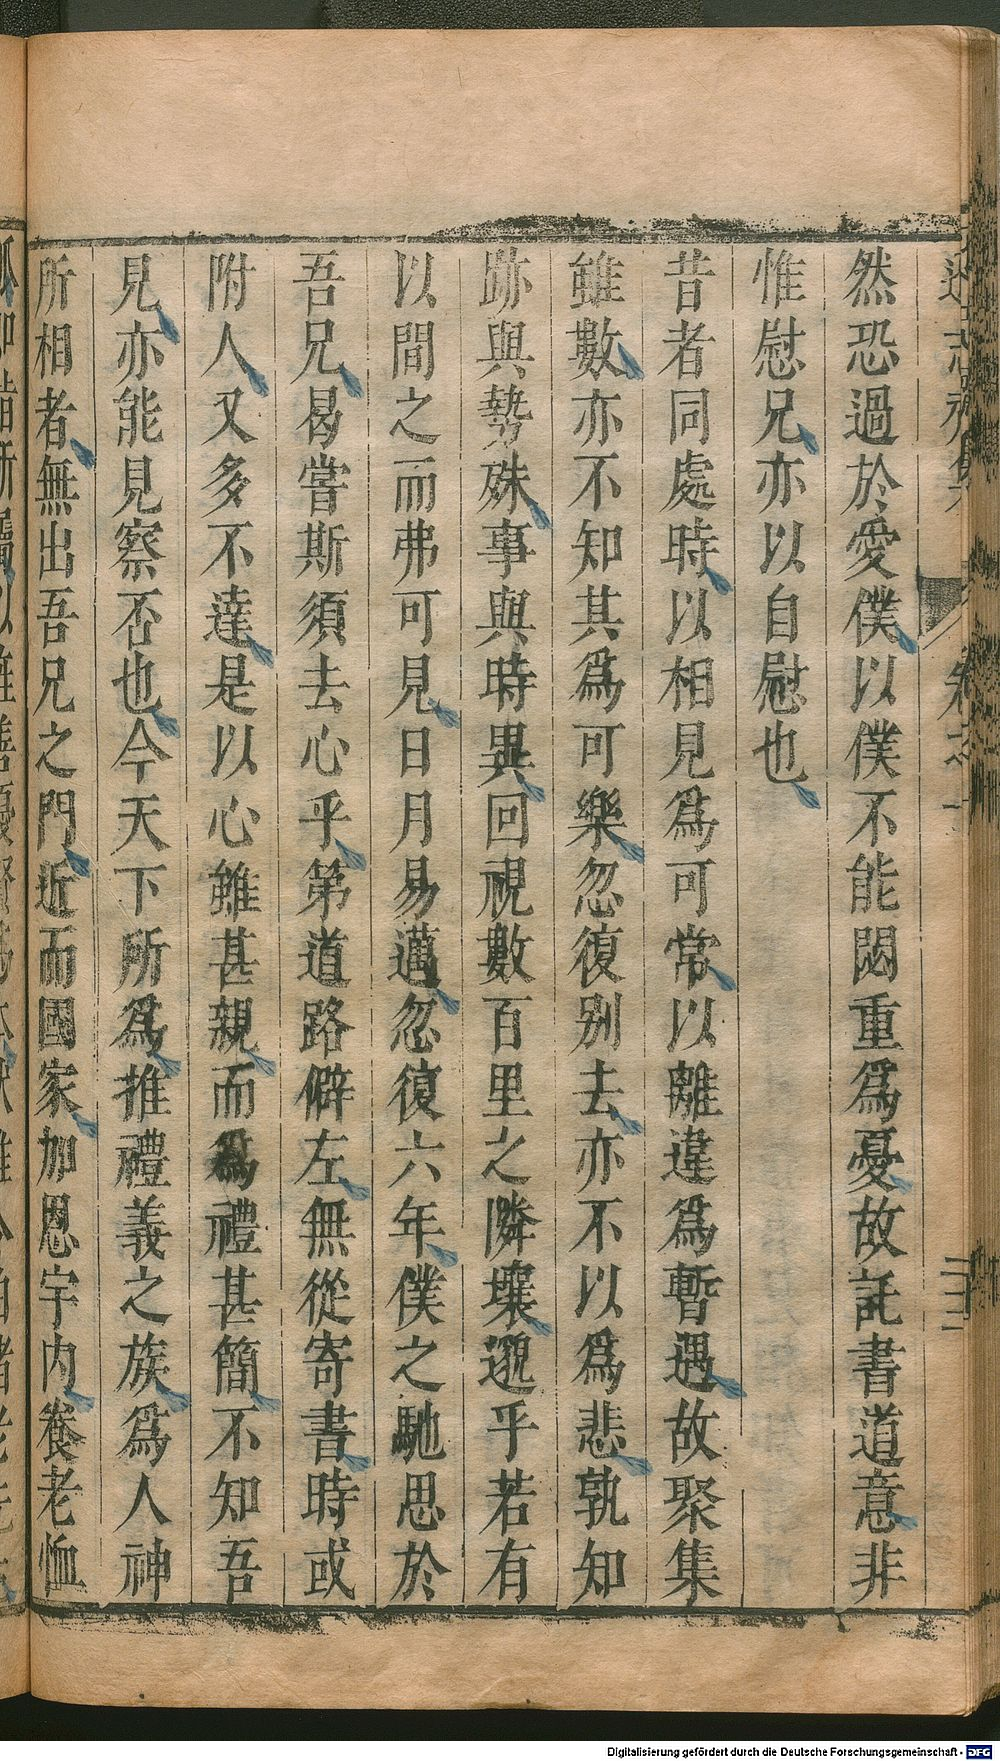 然恐過於愛僕以僕不能閟重爲憂故託書道意非
惟慰兄亦以自慰也
昔者同處時以相見爲可常以離違爲暫遇故聚集
雖數亦不知其爲可樂忽復别去亦不以爲悲孰知
跡與勢殊事與時異回視數百里之隣壤邈乎若有
以間之而弗可見日月易邁忽復六年僕之馳思於
吾兄曷嘗斯須去心乎第道路僻左無從寄書時或
附人又多不達是以心雖甚親而爲禮甚簡不知吾
見亦能見察否也今天下所爲推禮義之族爲人神
所相者無出吾兄之門近而國家加恩宇内養老恤
Digitalisierung gefördert durch die Deutsche Forschungsgemeinschaft - DFG